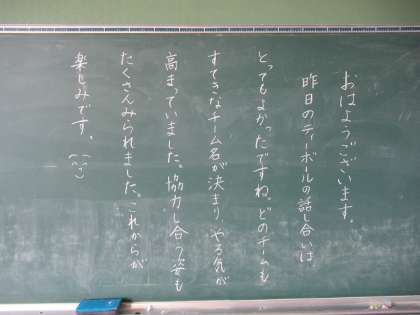 おはようございます。
昨日のティーボールの話し合いは
とってもよかったですね。どのチームも
すてきなチーム名が決まり やる気が
高まっていました。協力し合う姿も
たくさんみられました。これからが
楽しみです。(^^)